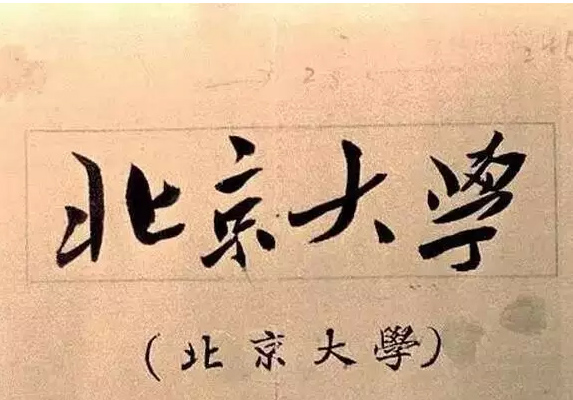 北京大學
（北京大學）